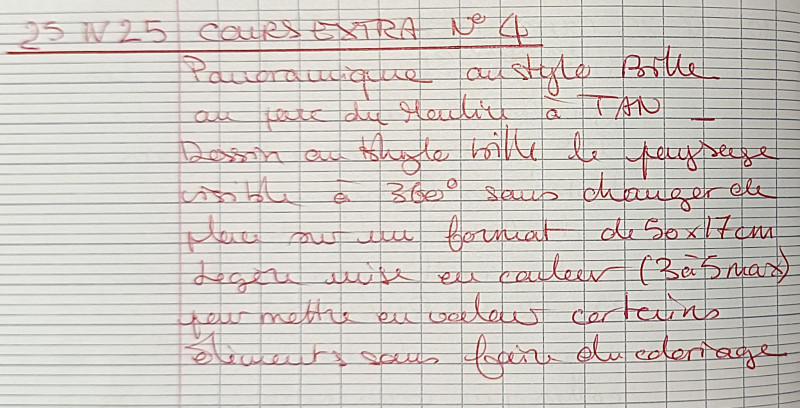 25 IV 25 COURS EXTRA N° 4
Panoramique au stylo Bille
au parc du Moulin à TAN _
Dessin au stylo bille le paysage
visible à 360° sans changer de
place sur un format de 50x17 cm
Légère mise en couleur (3 à 5 max)
pour mettre en valeur certains
éléments sans faire du coloriage